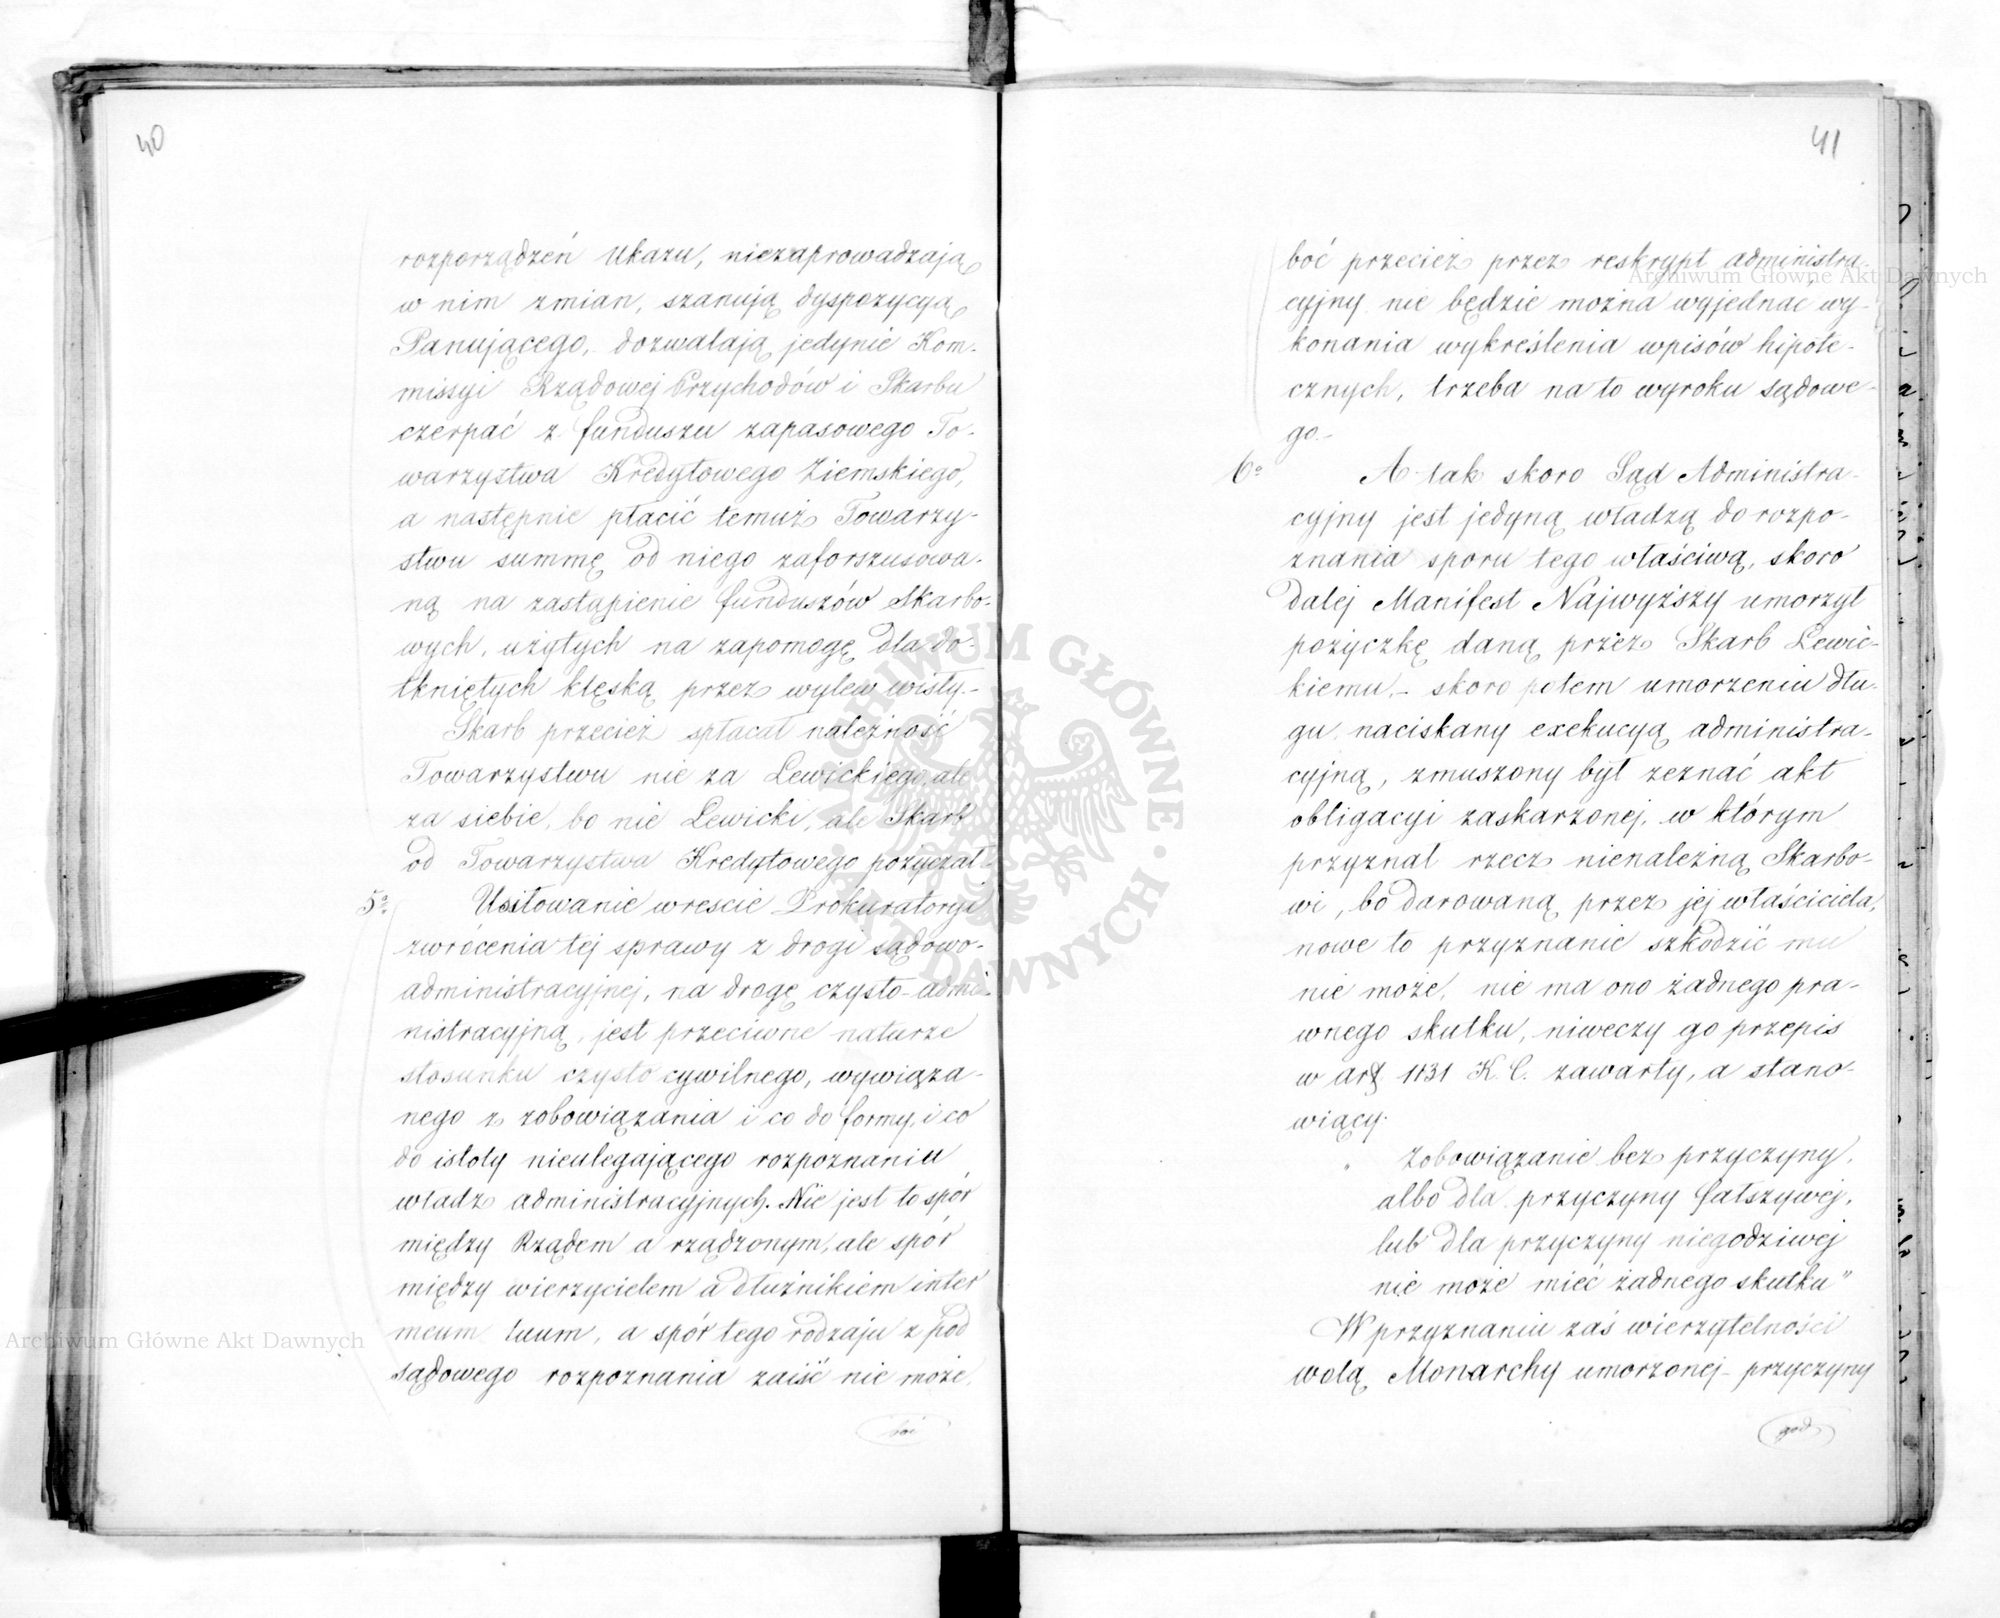 40
rozporządzeń Ukazu, niezaprowadzają
w nim zmian, szanują dyspozycyą
Panującego, dozwalają jedynie Kom-
missyi Rządowej Przychodów i Skarbu
czerpać z funduszu zapasowego To-
warzystwa Kredytowego Ziemskiego,
a następnie płacić temuż Towarzy-
stwu summę od niego zaforszusowa-
ną na zastąpienie funduszów Skarbo-
wych, użytych na zapomogę dla do-
tkniętych klęską przez wylew wisły.-
Skarb przecież spłacał należność
Towarzystwu nie za Lewickiego, ale
za siebie, bo nie Lewicki, ale Skarb
od Towarzystwa Kredytowego pożyczał.-
5o. Usiłowanie wrescie Prokuratoryi
zwrócenia tej sprawy z drogi sądowo-
administracyjnej, na drogę czysto-admi-
nistracyjną, jest przeciwne naturze
stosunku czysto cywilnego, wywiąza-
nego z zobowiązania i co do formy, i co
do istoty nieulegającego rozpoznaniu
władz administracyjnych. Nie jest to spór
między Rządem a rządzonym, ale spór
między wierzycielem a dłużnikiem inter
meum tuum, a spór tego rodzaju z pod
sądowego rozpoznania zaiść nie może.
41
boć przecież przez reskrypt administra-
cyjny nie będzie można wyjednać wy-
konania wykreślenia wpisów hipote-
cznych, trzeba na to wyroku sądowe-
go.-
6o A tak skoro Sąd Administra-
cyjny jest jedyną władzą do rozpo-
znania sporu tego właściwą, skoro
dalej Manifest Najwyższy umorzył
pożyczkę daną przez Skarb Lewic-
kiemu,- skoro potem umorzeniu dłu-
gu naciskany exekucyą administra-
cyjną, zmuszony był zeznać akt
obligacyi zaskarżonej, w którym
przyznał rzecz nienależną Skarbo-
wi, bo darowaną przez jej właściciela,
nowe to przyznanie szkodzić mu
nie może, nie ma ono żadnego pra-
wnego skutku, niweczy go przepis
w art 1131 K. C. zawarty, a stano-
wiący:
" Zobowiązanie bez przyczyny,
albo dla przyczyny fałszywej,
lub dla przyczyny niegodziwej
nie może mieć żadnego skutku"
W przyznaniu zaś wierzytelności
wolą Monarchy umorzonej- przyczyny
god
Archiwum Główne Akt Dawnych
Archiwum Główne Akt Dawnych
ARCHIWUM GŁÓWNE · AKT DAWNYCH ·